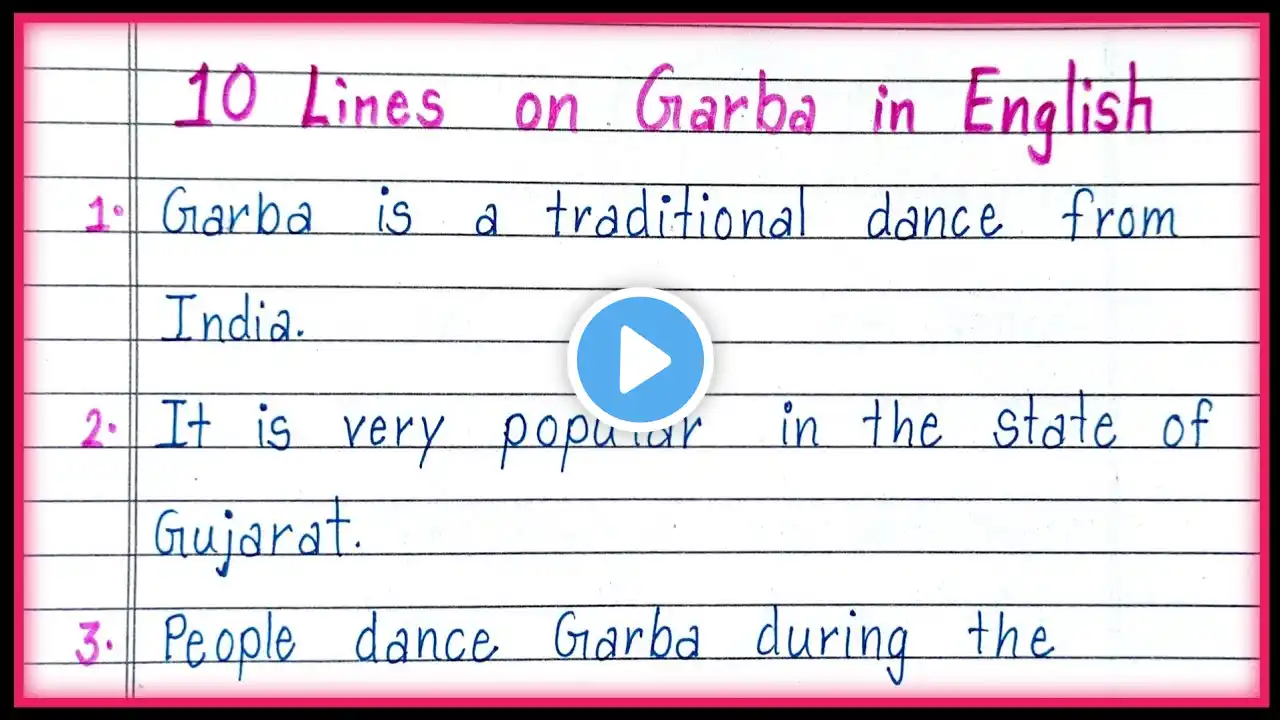 10 Lines on Garba in English
1. Garba is a traditional dance from
India.
2. It is very popular in the state of
Gujarat.
3. People dance Garba during the